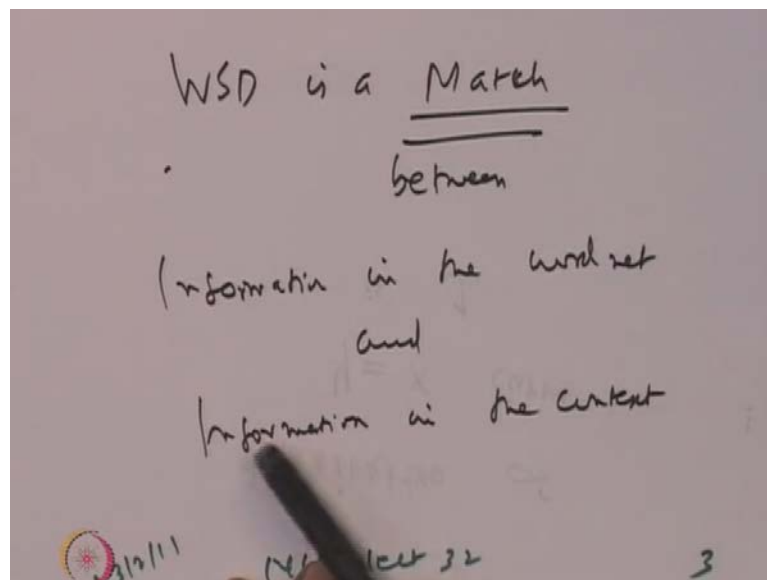 WSD is a Match
between
Information in the wordnet
and
Information in the context
lect 32 3